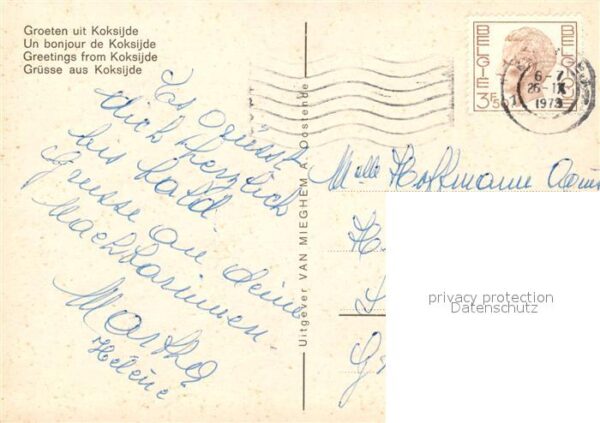 Groeten uit Koksijde
Un bonjour de Koksijde
Greetings from Koksijde
Grüsse aus Koksijde
BELGIE BELGIQUE
3,50
6-7
26-IX
1973
Es grüsst
dich herzlich
bis bald.
Grüsse an deine
Nachbarinnen.
Martha
Helene
Uitgever VAN MIEGHEM A. Oostende
Melle Hoffmann
privacy protection
Datenschutz